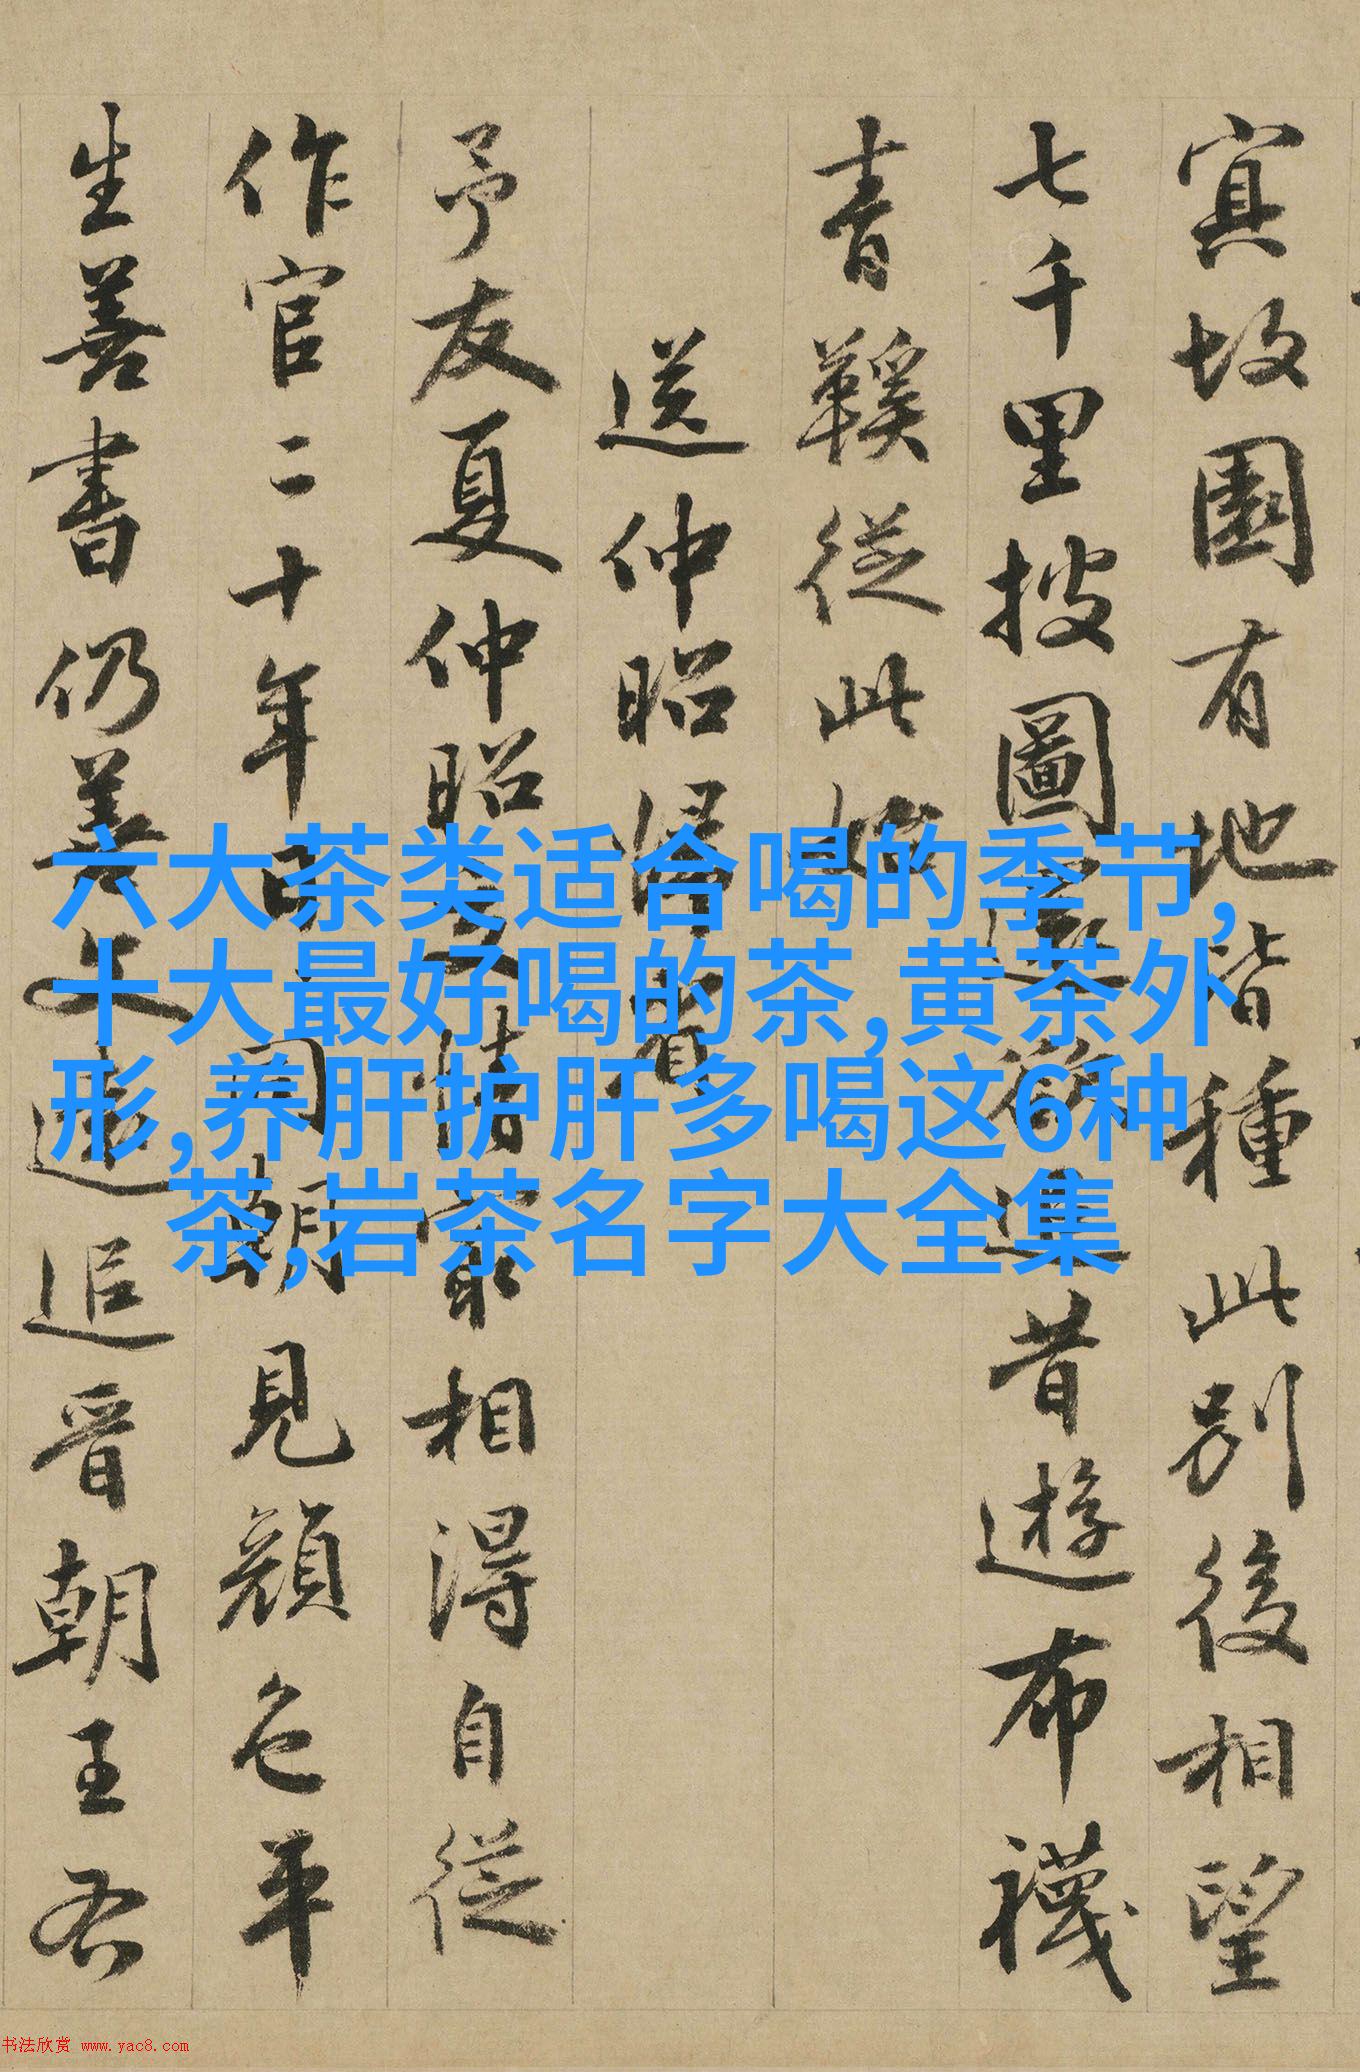 故園有地皆種此別後相望
七千里披圖還昔遊布襪
青鞵從此始
送仲昭歸省
予友夏仲昭交情最相得自從
作官二十年同朝見顏色平
生善書仍善文遠追晉朝王右
六大茶类适合喝的季节,
十大最好喝的茶,黄茶外
形,养肝护肝多喝这6种
茶,岩茶名字大全集
书法欣赏 www.yac8.com